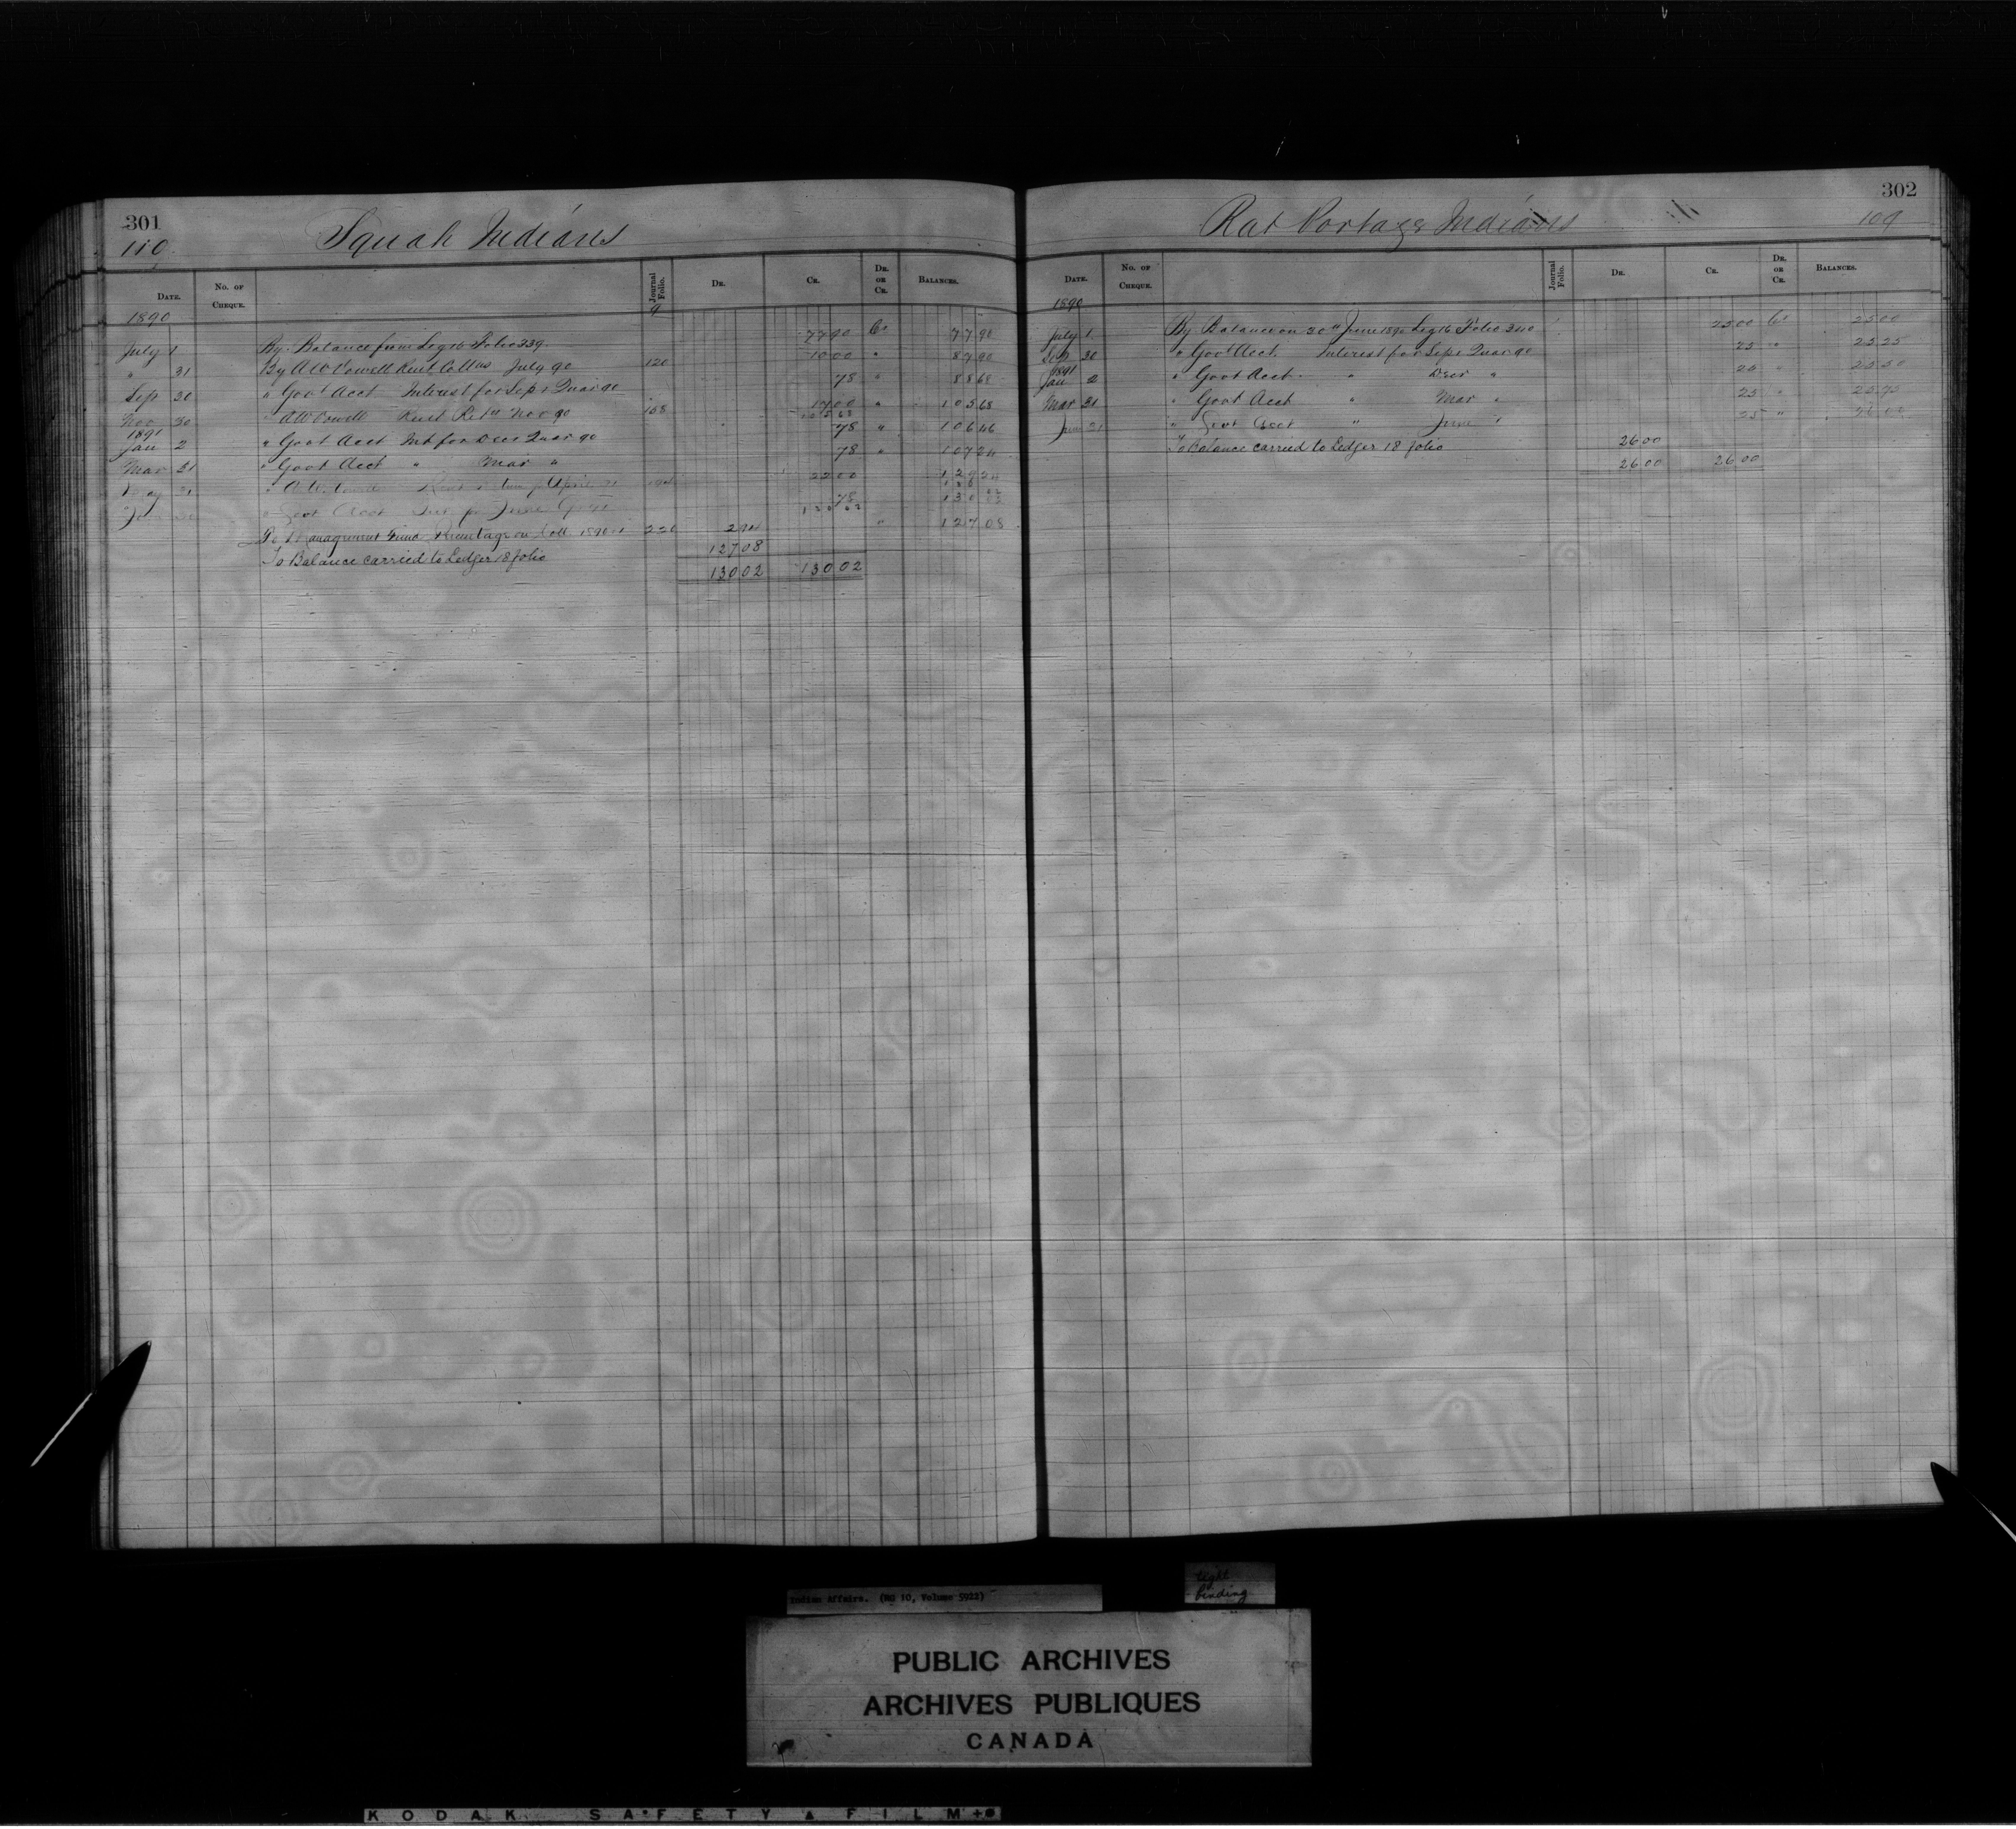 301
110.
Squah Indians
DATE. No. OF CHEQUE. Journal Folio. DR. CR. DR. OR CR. BALANCES.
1890 9
July 1 By Balance from Leg 16 Folio 339 77 90 Cr 77 90
" 31 By A W Vowell Rent Coll ns July 90 120 10 00 " 87 90
Sep 30 " Govt Acct Interest for Sept Quar 90 78 " 88 68
Nov 30 " A W Vowell Rent Ret Nov 90 158 17 00 " 105 68
1891
Jan 2 " Govt Acct Int for Decr Quar 90 78 " 106 46
Mar 31 " Govt Acct " Mar " 78 " 107 24
May 31 " A W Rent April 91 22 00 129 24
" Govt Acct June 78 130 02
To Management Fund Percentage on Coll 1890-1 220 2 94 " 127 08
To Balance carried to Ledger 18 folio 127 08
130 02 130 02
302
109
Rat Portage Indians
DATE. No. OF CHEQUE. Journal Folio. DR. CR. DR. OR CR. BALANCES.
1890
July 1 By Balance on 30th June 1890 Leg 16 Folio 340 25 00 Cr 25 00
Sep 30 " Govt Acct. Interest for Sept Quar 90 25 " 25 25
1891
Jan 2 " Govt Acct. " Decr " 25 " 25 50
Mar 31 " Govt Acct " Mar " 25 " 25 75
June 31 " Govt Acct " June " 25 " 26 00
To Balance carried to Ledger 18 folio 26 00
26 00 26 00
Indian Affairs. (RG 10, Volume 5922)
tight binding
PUBLIC ARCHIVES
ARCHIVES PUBLIQUES
CANADA
KODAK SAFETY FILM